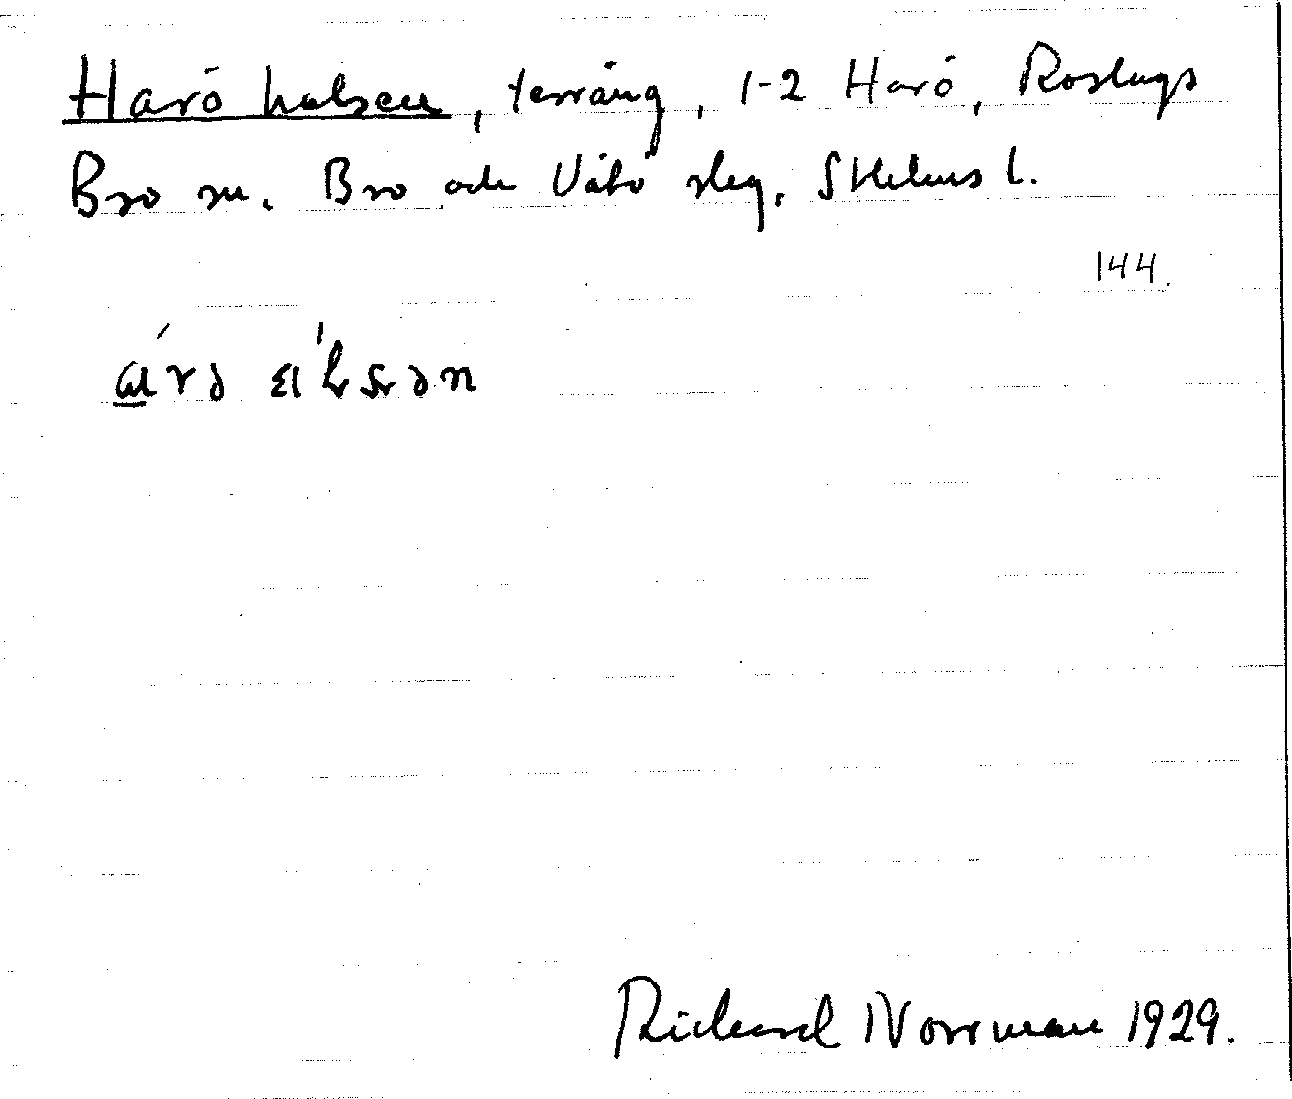 Harö halsen, terräng, 1-2 Harö, Roslags
Bro sn. Bro och Vätö skg. Sthlms l.
144.
Richard Norrman 1929.